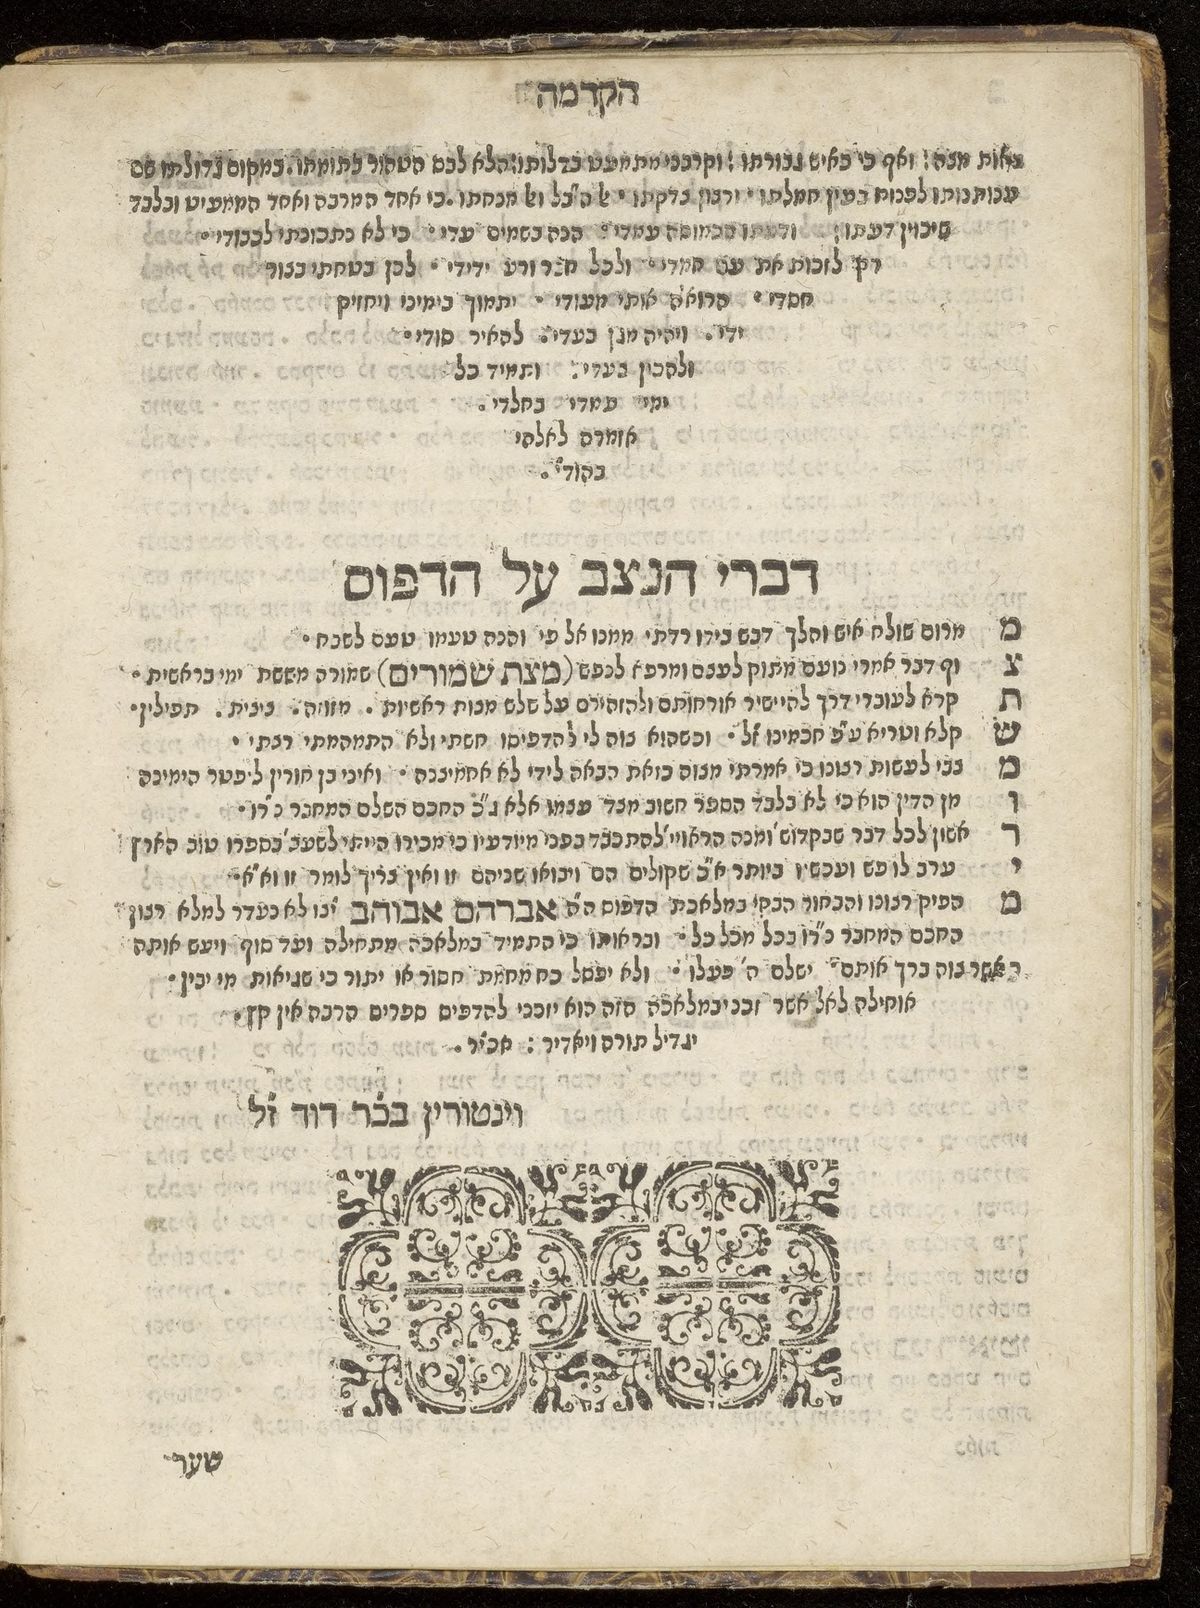 הקדמה
מאות מנה! ואף כי באיש גבורתו! וקרבני מתמעט בדלותו! הלא לבם הטהור בתומתו. במקום גדולתו שם
ענותנותו לפנות בעין חמלתו· ירצון בדקתו · ש ה"כל וש מנחתו. כי אחד המרבה ואחד הממעיט ובלבד
שיכוין דעתו: ודעתו הכמוסה עמדי· הנה בשמים עדי· כי לא כתבתי לכבודי·
רק לזכות את עם חמדי· ולכל חבר ורע ידידי · לכן בטחתי בצור
חסדי· הרואה אותי מעודי · יתמוך בימיני ויחזיק
ידי. ויהיה מגן בעדי. להאיר סודי·
ולהכין צעדי: ותמיד כל
ימי עמדי בחלדי·
אומרה לאלהי
בהודי.
דברי הנצב על הדפוס
מ מרום שולח איש והלך דבש בידו רדתי ממנו אל פי והנה טעמו טעם לשבח·
צ וף דבר אמרי נועם מתוק לעצם ומרפא לנפש (מצת שמורים) שמורה מששת ימי בראשית·
ת קרא לעוברי דרך להיישיר אורחותם ולהזהירם על שלש מצות ראשיות. מזוזה. ציצית. תפילין·
ש קלא וטריא ע"פ חכמינו ז"ל· וכשהוא צוה לי להדפיסו חשתי ולא התמהמהתי רצתי·
מ צבי לעשות רצונו כי אמרתי מצוה כזאת הבאה לידי לא אחמיצנה· ואיני בן חורין ליפטר הימינה
ו מן הדין הוא כי לא בלבד הספר חשוב מצד עצמו אלא ג"כ החכם השלם המחבר כ"רו·
ר אשון לכל דבר שבקדוש' ומנה הראויי' להתכבד בפני מיודעיו כי מכירו הייתי לשעב' בספרו טוב הארץ
י ערב לו פש ועכשיו ביותר א"כ שקולים הם ויבואו שניהם זו ואין צריך לומר זו וא"א·
מ הפיק רצונו והבחור הבקי במלאכת הדפוס ה"ה אברהם אבוהב יצו לא נעדר למלא רצון
החכם המחבר כ"רו בכל מכל כל· ובראותו כי התמיד במלאכה מתחילה ועד סוף ויעש אותה
כאשר צוה ברך אותם· ישלם ה' פעלו · ולא יפסל כח מחמת חסור או יתור כי שגיאות מי יבין·
אוחילה לאל אשר זבני במלאכה הזה הוא יזכני להדפיס ספרים הרבה אין קץ·
יגדיל תורה ויאדיר: אכ"ר.
וינטורין בכ"ר דוד ז"ל
שער